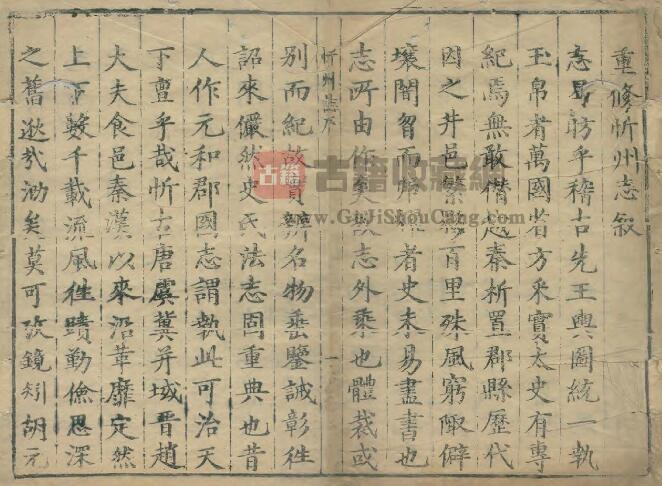 重修忻州志敘
志昂昉乎稽古先王輿圖統一執
玉帛者萬國省方采實太史有專
紀焉無敢僭越秦析置郡縣歷代
因之井邑繁夥百里殊風窮陬僻
壤闇智而 者史未易盡書也
志所由作 志外乘也體裁或
忻州志序
一
別而紀故實辨名物垂鑒誡彰徃
詔來儼然史氏法志固重典也昔
人作元和郡國志謂執此可治天
下亶乎哉忻古唐虞冀并域晉趙
大夫食邑秦漢以來沿革靡定然
上下數千載流風徃蹟勤儉思深
之舊逖哉泐矣莫可攷鏡矧胡元
古籍
古籍收藏網
www.GuJiShouCang.com